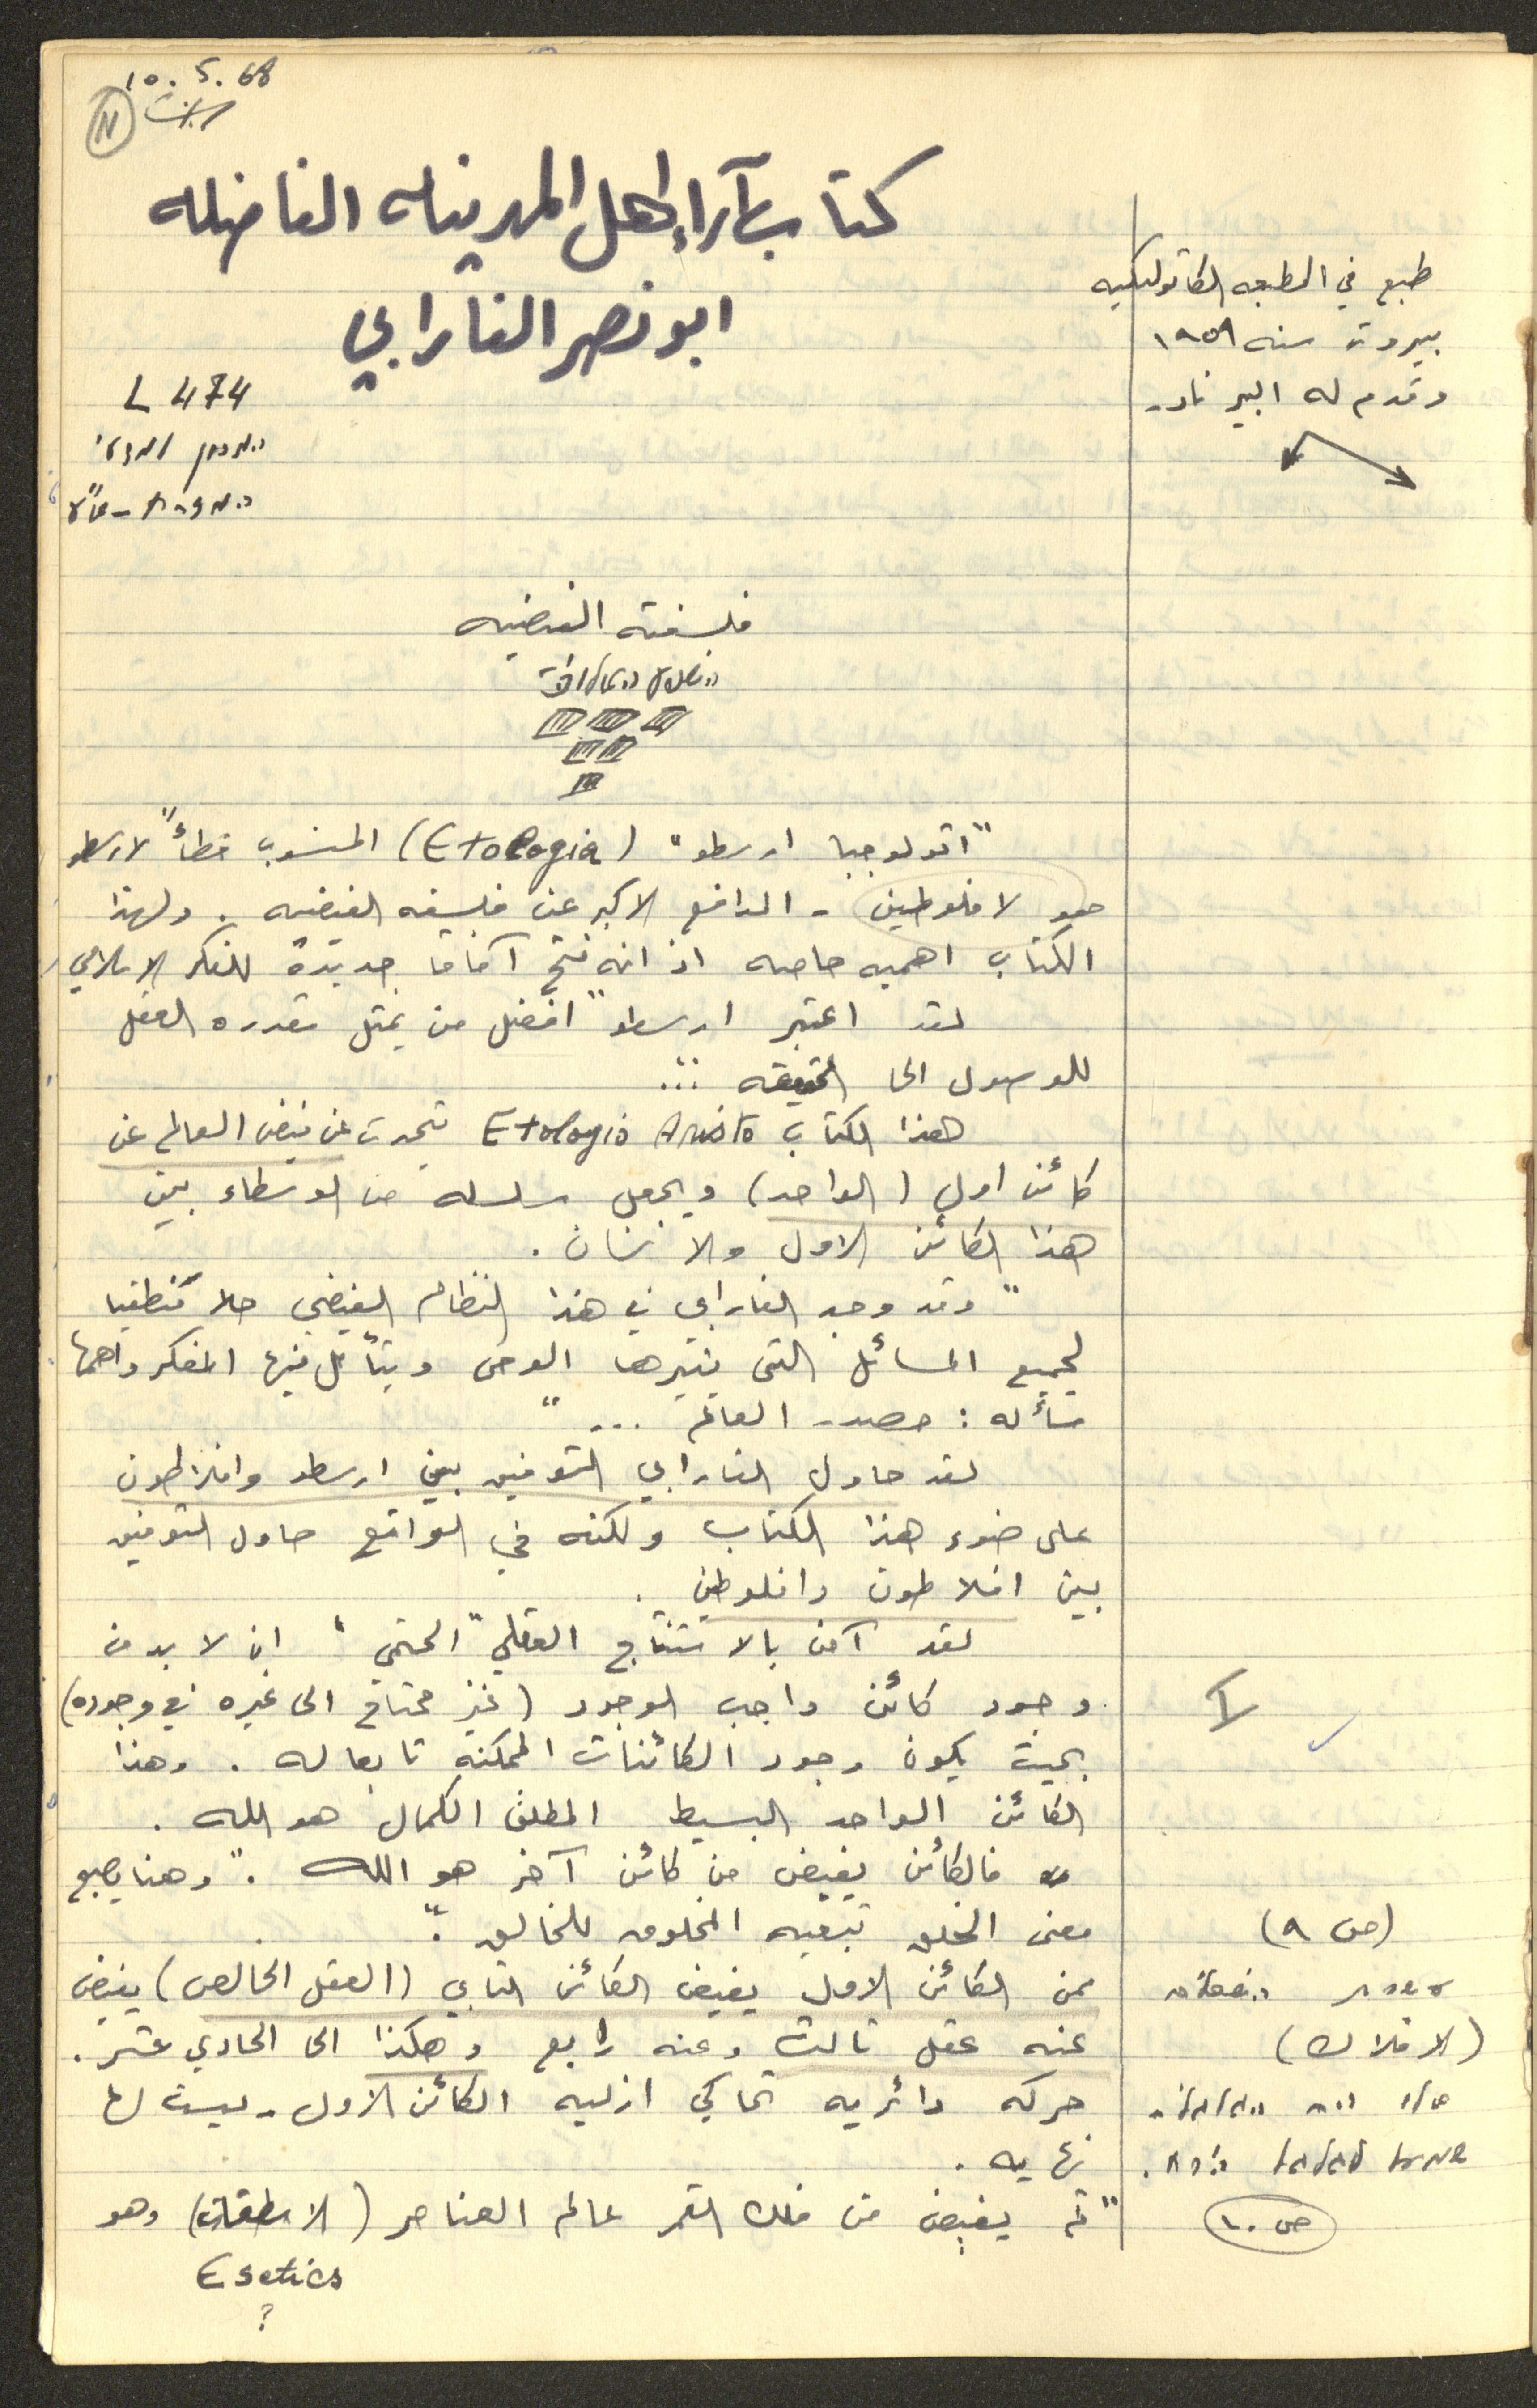 10.5.68
N
كتاب آراء اهل المدينه الفاضله
ابو نصر الفارابي
طبع في المطبعه الكاتوليكيه
بيروت سنه ١٩٥٩
وقدم له البير نادر
L 474
فلسفته الفيضيه
"اتولوجيا ارسطو" (Etologia) المنسوب خطأً لارسطو
هو لافلوطين - المدافع الاكبر عن فلسفه الفيضيه. ولهذا
الكتاب اهميه خاصه اذ انه فتح آفاقا جديدة للفكر الاسلامي
لقد اعتبر ارسطو "افضل من يمثل مقدره العقل
للوصول الى الحقيقه ...
هذا الكتاب Etologia Aristo يتحدث عن فيض العالم عن
كائن اول (الواحد) ويجعل سلسله من الوسطاء بين
هذا الكائن الاول والانسان.
"وقد وجد الفارابي في هذا النظام الفيضي حلا منطقيا
لجميع المسائل التي يثيرها الوحي ويتأمل فيها المفكر واهمها
مسأله: مصدر العالم ..."
لقد حاول الفارابي التوفيق بين ارسطو وافلاطون
على ضوء هذا الكتاب ولكنه في الواقع حاول التوفيق
بين افلاطون وافلوطين.
لقد آمن بالاستنتاج العقلي "الحتمي" ان لا بد من
وجود كائن واجب الوجود (غير محتاج الى غيره في وجوده)
بحيث يكون وجود الكائنات الممكنه تابعا له. وهذا
الكائن الواحد البسيط المطلق الكمال هو الله.
فالكائن يفيض من كائن آخر هو الله. "وهنا يصبح
معنى الخلق تبعيه المخلوق للخالق."
(ص ٩)
فمن الكائن الاول يفيض الكائن الثاني (العقل الخالص) يفيض
عنه عقل ثالث وعنه رابع وهكذا الى الحادي عشر.
(الافلاك)
حركه دائريه تحاكي ازليه الكائن الاول - ليست لها
نهايه.
"ثم يفيض من فلك القمر عالم العناصر (الاسطقسات) وهو
ص ١٠
Esetics
?